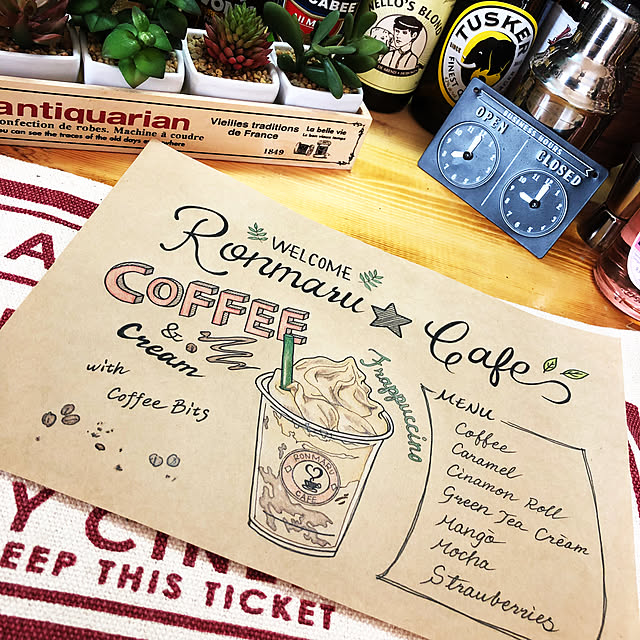 CABEE
NELLO'S BLOND
TUSKER
FINEST
antiquarian
confection de robes. Machine à coudre
you can see the traces of the old days
Vieilles traditions
de France
1849
La belle vie
BUSINESS HOURS
OPEN
CLOSED
WELCOME
Ronmaru ★ Cafe
COFFEE
&
Cream
with
Coffee Bits
Frappuccino
RONMARU
CAFE
MENU
Coffee
Caramel
Cinamon Roll
Green Tea Cream
Mango
Mocha
Strauberries
EEP THIS TICKET